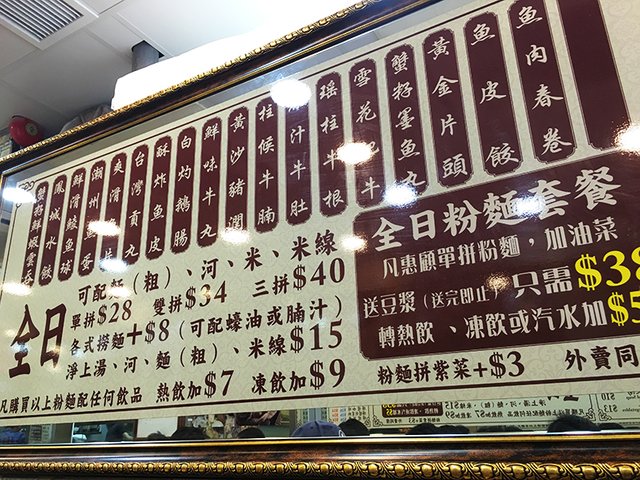 魚肉春卷
魚皮餃
黃金片頭
蟹籽墨魚丸
瑤柱牛根
汁牛肚
柱候牛腩
黃沙豬潤
鮮味牛丸
白灼鵝腸
酥炸魚皮
台灣貢丸
鮮滑鯪魚球
鳳城水餃
蟹籽鮮蝦雲吞
全日
可配麵（粗）、河、米、米線
單拼$28 雙拼$34 三拼$40
各式撈麵+$8（可配蠔油或腩汁）
淨上湯、河、麵（粗）、米線$15
凡購買以上粉麵配任何飲品 熱飲加$7 凍飲加$9
全日粉麵套餐
凡惠顧單拼粉麵，加油菜
送豆漿（送完即止）只需$38
轉熱飲、凍飲或汽水加$5
粉麵拼紫菜+$3 外賣同